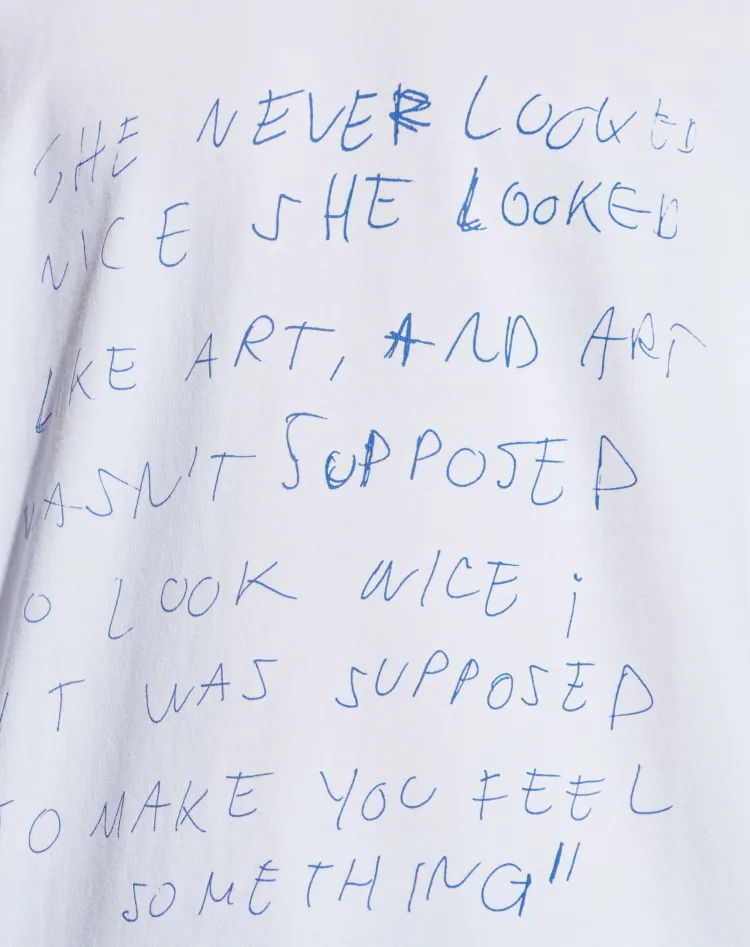 SHE NEVER LOOKED
NICE SHE LOOKED
LIKE ART, AND ART
WASN'T SUPPOSED
TO LOOK NICE;
IT WAS SUPPOSED
TO MAKE YOU FEEL
SOMETHING"